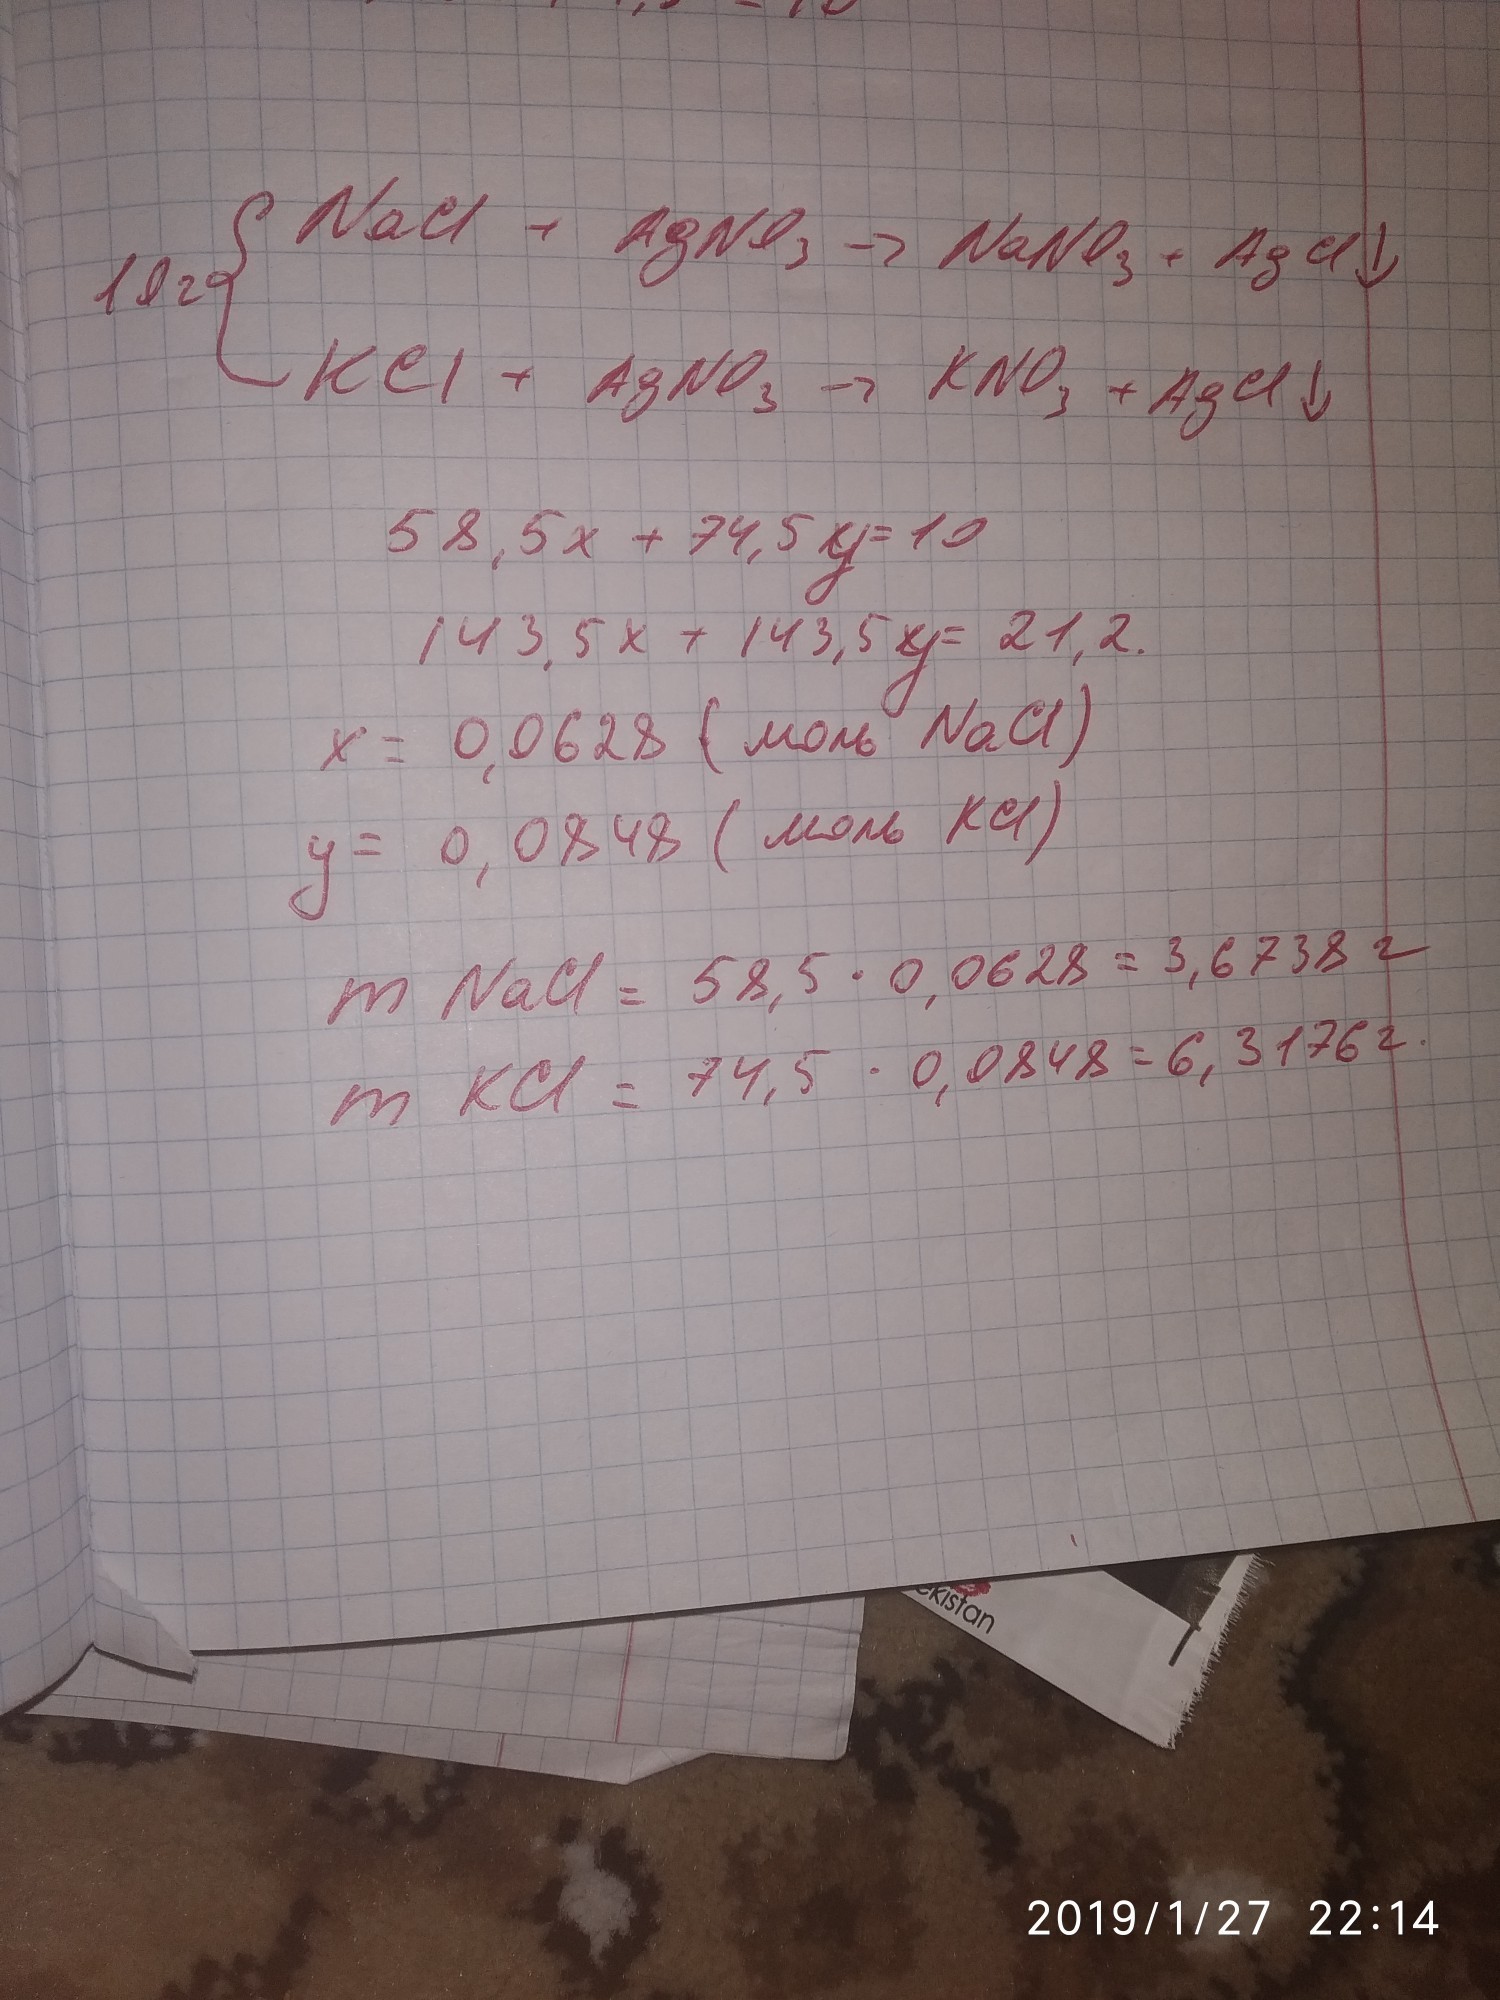 10г { NaCl + AgNO₃ → NaNO₃ + AgCl↓
KCl + AgNO₃ → KNO₃ + AgCl↓
58,5x + 74,5y = 10
143,5x + 143,5y = 21,2.
x = 0,0628 (моль NaCl)
y = 0,0848 (моль KCl)
m NaCl = 58,5 · 0,0628 = 3,6738 г
m KCl = 74,5 · 0,0848 = 6,3176 г.
ekistan
2019/1/27 22:14